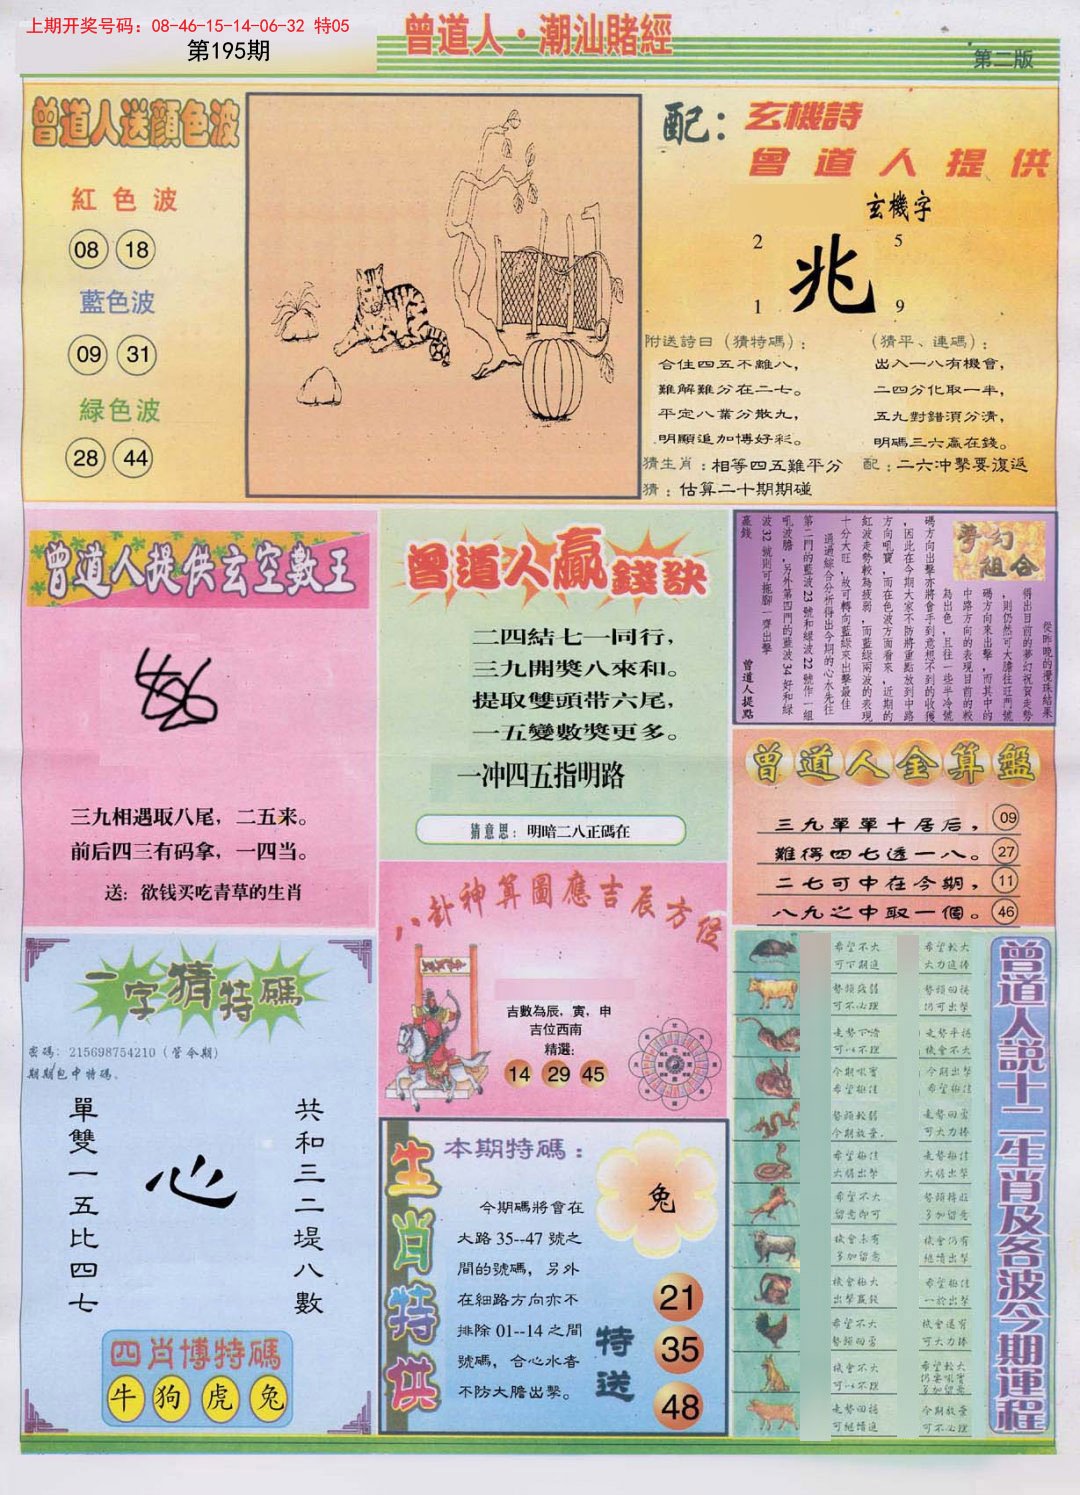 上期开奖号码：08-46-15-14-06-32 特05
第195期
曾道人·潮汕賭經
第二版
曾道人送顔色波
紅色波
08 18
藍色波
09 31
緑色波
28 44
配：玄機詩
曾道人提供
玄機字
2 5
兆
1 9
附送詩曰（猜特碼）：
合住四五不離八，
難解難分在二七。
平定八業分散九，
明顯追加博好彩。
（猜平、連碼）：
出入一八有機會，
二四分化取一半，
五九對錯須分清，
明碼三六贏在錢。
猜生肖：相等四五難平分
配：二六冲擊要復返
猜：估算二十期期碰
曾道人提供玄空數王
三九相遇取八尾，二五来。
前后四三有码拿，一四当。
送：欲钱买吃青草的生肖
曾道人贏錢訣
二四結七一同行，
三九開獎八來和。
提取雙頭带六尾，
一五變數獎更多。
一冲四五指明路
猜意思：明暗二八正碼在
夢幻組合
從昨晚的攪珠結果
得出目前的夢幻祝賀走勢
，則仍然可大膽往旺門號
碼方向來出擊，而其中的
中路方向的表現目前的較
為出色，且往一些半冷號
碼方向出擊亦將會手到意想不到的收獲
，因此在今期大家不防將重點放到中路
方向吼寶，而在色波方面看來，近期的
紅波走勢較為疲弱，而藍綠兩波的表現
十分大旺，故可轉向藍綠來出擊最佳
通過綜合分析得出今期的心水先往
第二門的藍波23號和綠波22號作一組
吼波膽，另外第四門的藍波34好和綠
波32號則可拖腳一齊出擊
贏錢
曾道人提點
曾道人金算盤
三九單單十居后，09
難得四七透一八。27
二七可中在今期，11
八九之中取一個。46
八卦神算圖應吉辰方位
吉數為辰，寅，申
吉位西南
精選：
14 29 45
一字猜特碼
密碼：215698754210（管今期）
期期包中特碼、
單雙一五比四七
心
共和三二堤八數
四肖博特碼
牛 狗 虎 兔
生肖特供
本期特碼：
今期碼將會在
大路35--47號之
間的號碼，另外
在細路方向亦不
排除01--14之間
號碼，合心水者
不防大膽出擊。
兔
特送
21
35
48
曾道人説十二生肖及各波今期運程
希望不大
可下期進
希望較大
大力進捧
勢頭疲弱
可不必理
勢頭回揚
仍可出擊
走勢下滑
可以不理
走勢平穩
機會不大
今期吼實
希望極佳
今期出擊
希望極佳
勢頭較弱
今期放棄
走勢回勇
可大力捧
希望極佳
大膽出擊
走勢極佳
大膽出擊
希望不大
留意即可
勢頭轉旺
多加留意
機會未有
多加留意
機會仍有
繼續出擊
機會極大
出擊贏錢
希望極佳
一於出擊
希望不大
勢頭回勇
機會還有
可大力捧
機會不大
可以不理
希望較大
仍要吼實
多加留意
走勢回穩
可繼續進
今期放棄
可不必理